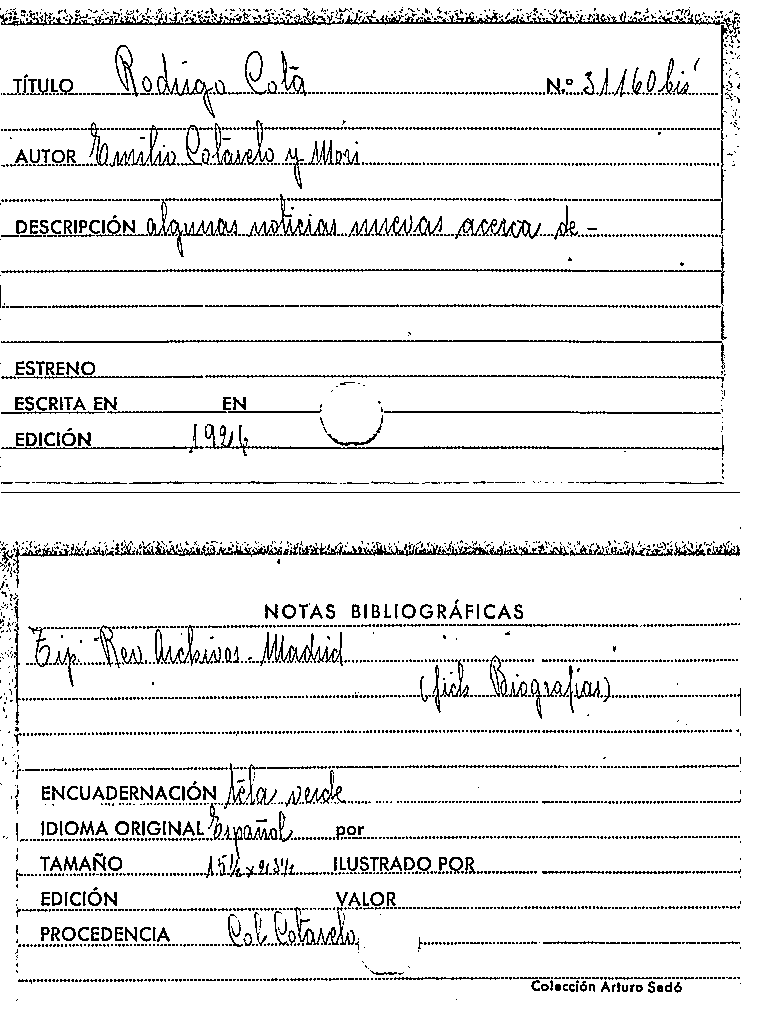 TÍTULO Rodrigo Cota N.º 31160 bis
AUTOR Emilio Cotarelo y Mori
DESCRIPCIÓN algunas noticias nuevas acerca de -
ESTRENO
ESCRITA EN EN
EDICIÓN 1926
NOTAS BIBLIOGRÁFICAS
Tip. Rev. Archivos - Madrid
(fich Biografias)
ENCUADERNACIÓN tela verde
IDIOMA ORIGINAL Español por
TAMAÑO 15½ x 23½ ILUSTRADO POR
EDICIÓN VALOR
PROCEDENCIA Col. Cotarelo
Colección Arturo Sedó